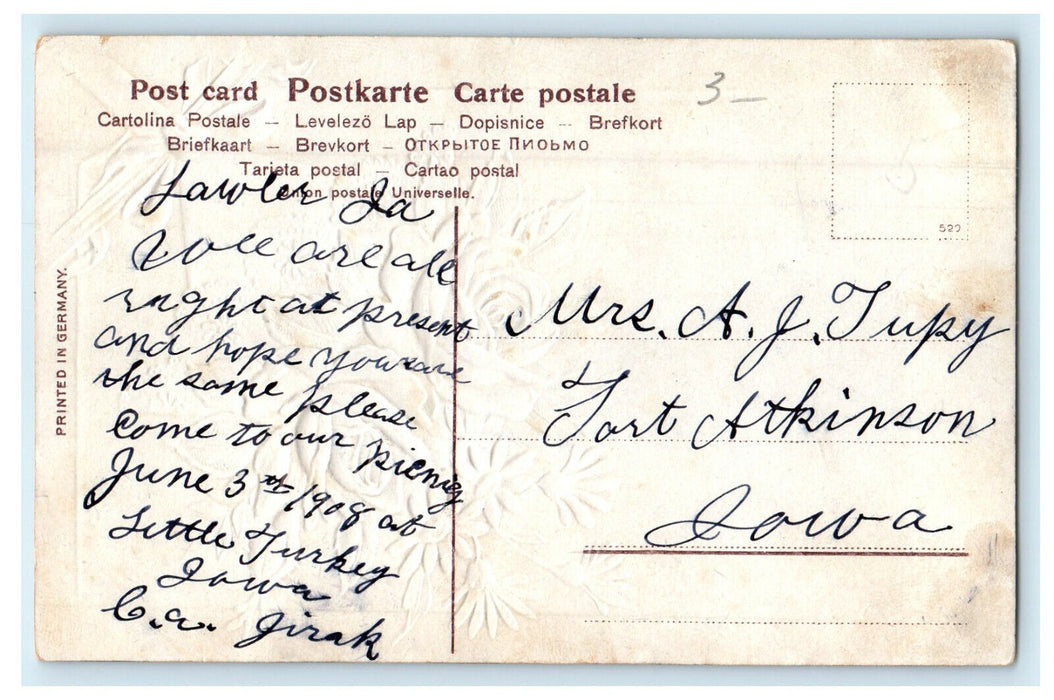 Post card Postkarte Carte postale
Cartolina Postale — Levelező Lap — Dopisnice — Brefkort
Briefkaart — Brevkort — ОТКРЫТОЕ ПИСЬМО
Tarjeta postal — Cartao postal
Union postale Universelle.
3 –
529
PRINTED IN GERMANY.
Lawler Ia
Well are all
right at present
and hope you are
the same please
Come to our picnic
June 3th 1908 at
Little Turkey
Iowa
C.A. Jirak
Mrs. A. J. Tupy
Fort Atkinson
Iowa